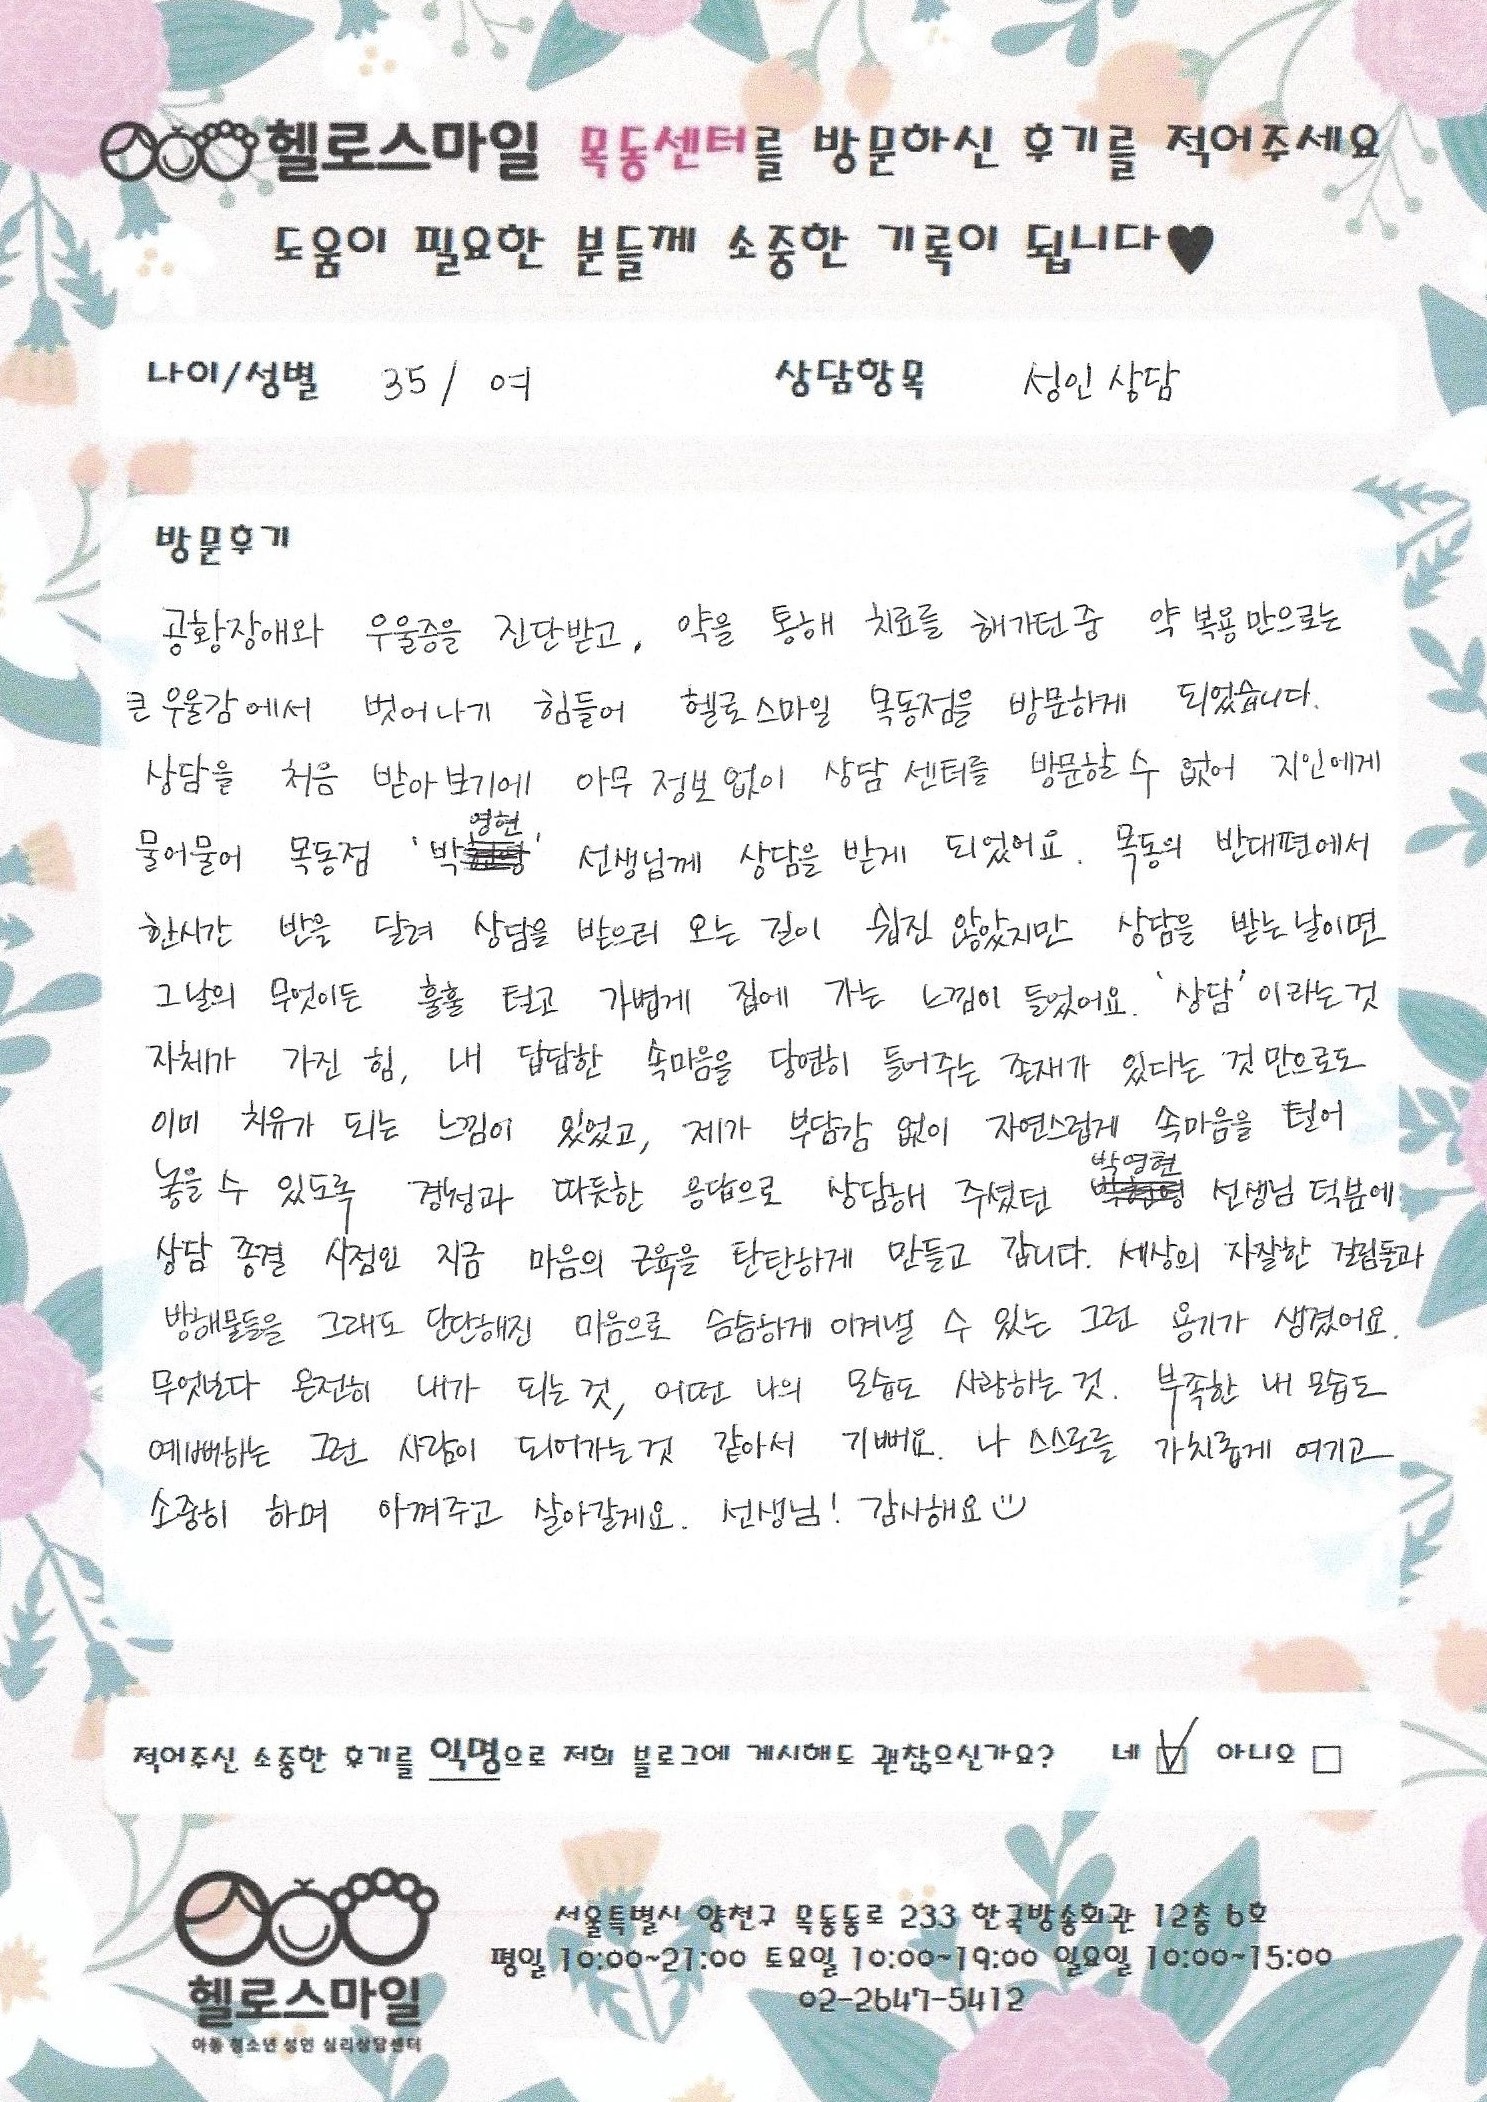 헬로스마일 목동센터를 방문하신 후기를 적어주세요
도움이 필요한 분들께 소중한 기록이 됩니다♥
나이/성별 35 / 여 상담항목 성인 상담
방문후기
공황장애와 우울증을 진단받고, 약을 통해 치료를 해가던 중 약 복용만으로는
큰 우울감에서 벗어나기 힘들어 헬로스마일 목동점을 방문하게 되었습니다.
상담을 처음 받아보기에 아무 정보 없이 상담 센터를 방문할 수 없어 지인에게
물어물어 목동점 '박영현' 선생님께 상담을 받게 되었어요. 목동의 반대편에서
한시간 반을 달려 상담을 받으러 오는 길이 쉽진 않았지만 상담을 받는 날이면
그날의 무엇이든 훌훌 털고 가볍게 집에 가는 느낌이 들었어요. '상담'이라는 것
자체가 가진 힘, 내 답답한 속마음을 당연히 들어주는 존재가 있다는 것 만으로도
이미 치유가 되는 느낌이 있었고, 제가 부담감 없이 자연스럽게 속마음을 털어
놓을 수 있도록 경청과 따듯한 응답으로 상담해 주셨던 박영현 선생님 덕분에
상담 종결 시점인 지금 마음의 근육을 탄탄하게 만들고 갑니다. 세상의 자잘한 걸림돌과
방해물들을 그래도 단단해진 마음으로 슴슴하게 이겨낼 수 있는 그런 용기가 생겼어요.
무엇보다 온전히 내가 되는 것, 어떤 나의 모습도 사랑하는 것. 부족한 내 모습도
예뻐하는 그런 사람이 되어가는 것 같아서 기뻐요. 나 스스로를 가치롭게 여기고
소중히 하며 아껴주고 살아갈게요. 선생님! 감사해요
적어주신 소중한 후기를 익명으로 저희 블로그에 게시해도 괜찮으신가요? 네 ☑ 아니오 □
서울특별시 양천구 목동동로 233 한국방송회관 12층 6호
평일 10:00~21:00 토요일 10:00~19:00 일요일 10:00~15:00
02-2647-5412
헬로스마일
아동 청소년 성인 심리상담센터